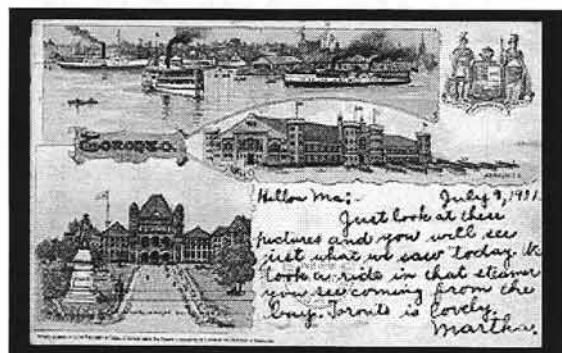 TORONTO.
ARMOURIES
Hellou Ma:- July 9, 1901.
Just look at these
pictures and you will see
just what we saw today. We
took a ride in that steamer
you see coming from the
bay. Toronto is lovely.
Martha.